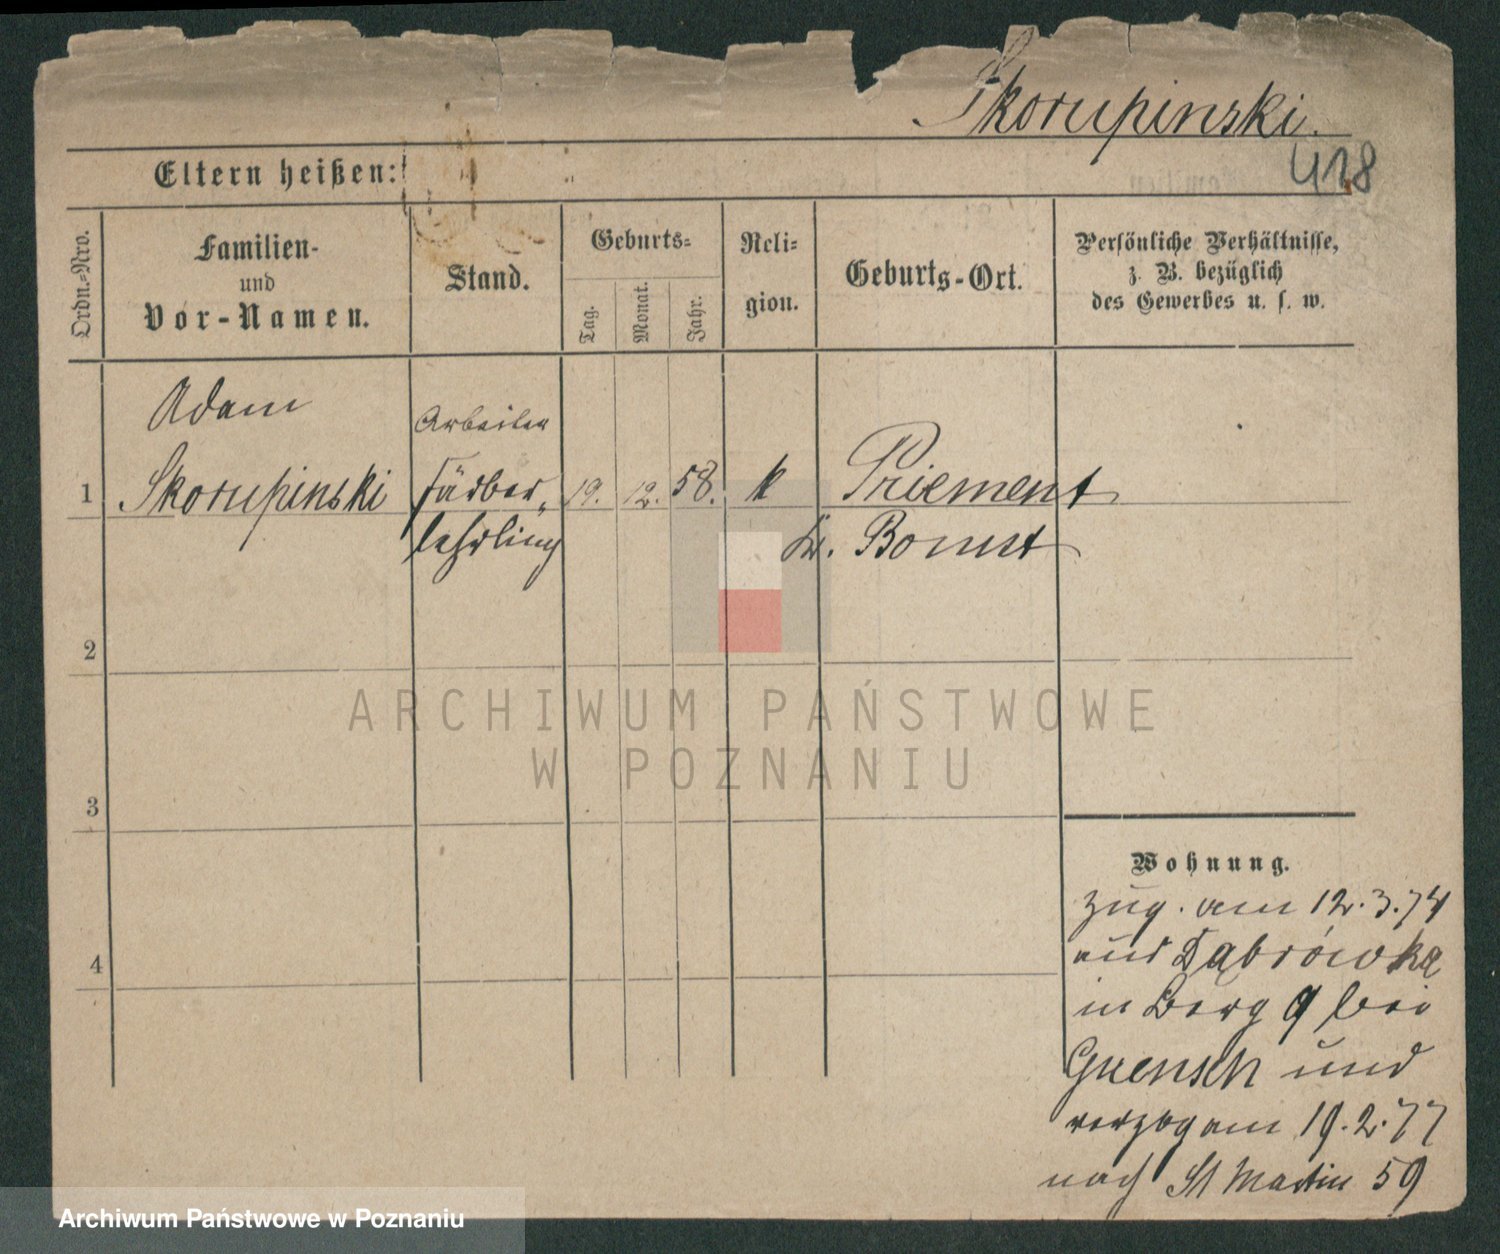 Skorupinski.
Eltern heißen:
418
Ordn.-Nro.
Familien-
und
Vor-Namen.
Stand.
Geburts-
Tag.
Monat.
Jahr.
Reli-
gion.
Geburts-Ort.
Persönliche Verhältnisse,
z. B. bezüglich
des Gewerbes u. s. w.
Adam
Arbeiter
1 Skorupinski Färber- 19. 12. 58. k Priement
lehrling Kr. Bomst
2
ARCHIWUM PAŃSTWOWE
W POZNANIU
3
Wohnung.
zug. am 12.3.74
aus Dąbrówka
in Berg 9 bei
und
verzog am 19.2.77
nach St Martin 59
4
Archiwum Państwowe w Poznaniu